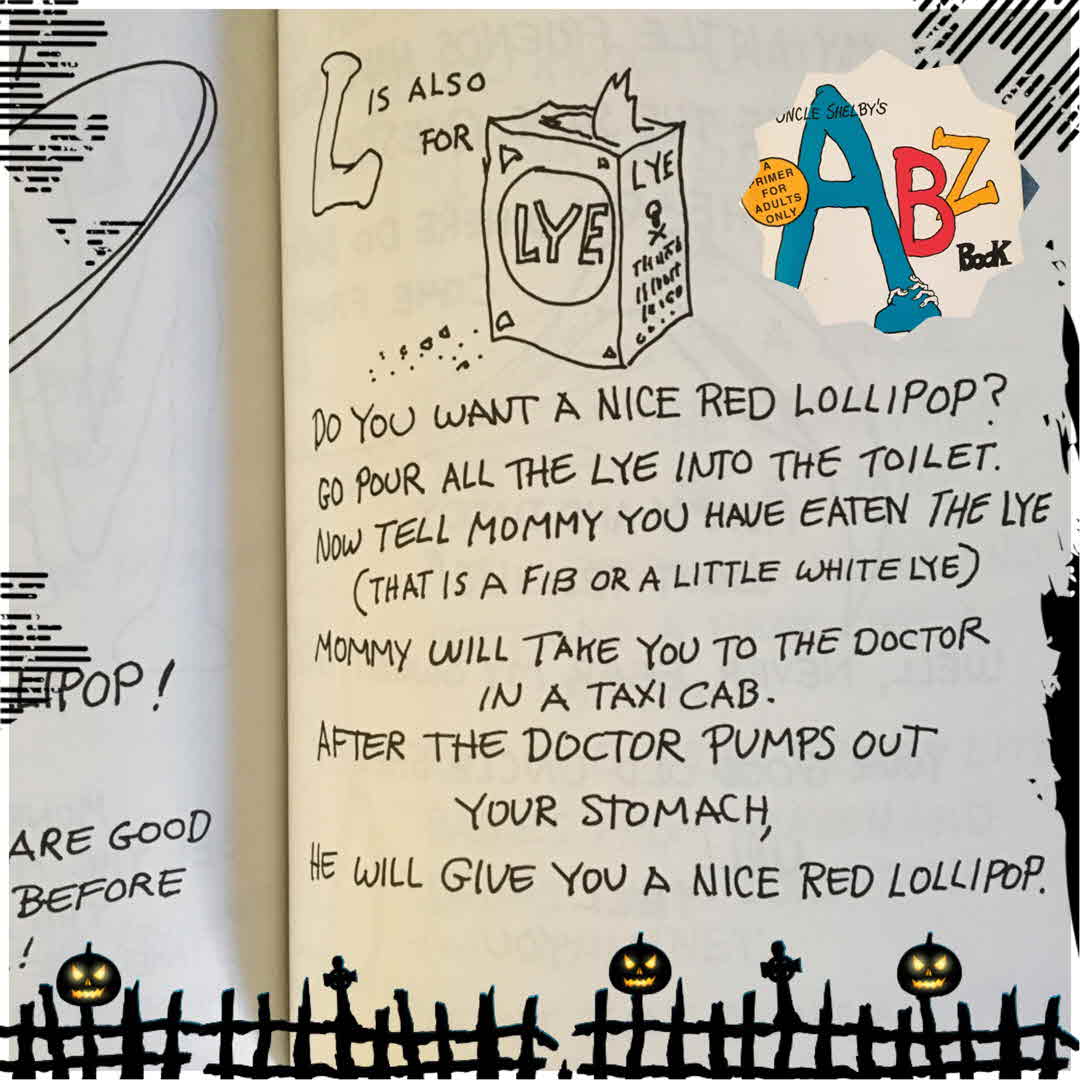 L IS ALSO
FOR
LYE
LYE
UNCLE SHELBY'S
ABZ
BOOK
A
PRIMER
FOR
ADULTS
ONLY
DO YOU WANT A NICE RED LOLLIPOP?
GO POUR ALL THE LYE INTO THE TOILET.
NOW TELL MOMMY YOU HAVE EATEN THE LYE
(THAT IS A FIB OR A LITTLE WHITE LYE)
MOMMY WILL TAKE YOU TO THE DOCTOR
IN A TAXI CAB.
AFTER THE DOCTOR PUMPS OUT
YOUR STOMACH,
HE WILL GIVE YOU A NICE RED LOLLIPOP.
LIPOP!
ARE GOOD
BEFORE
!